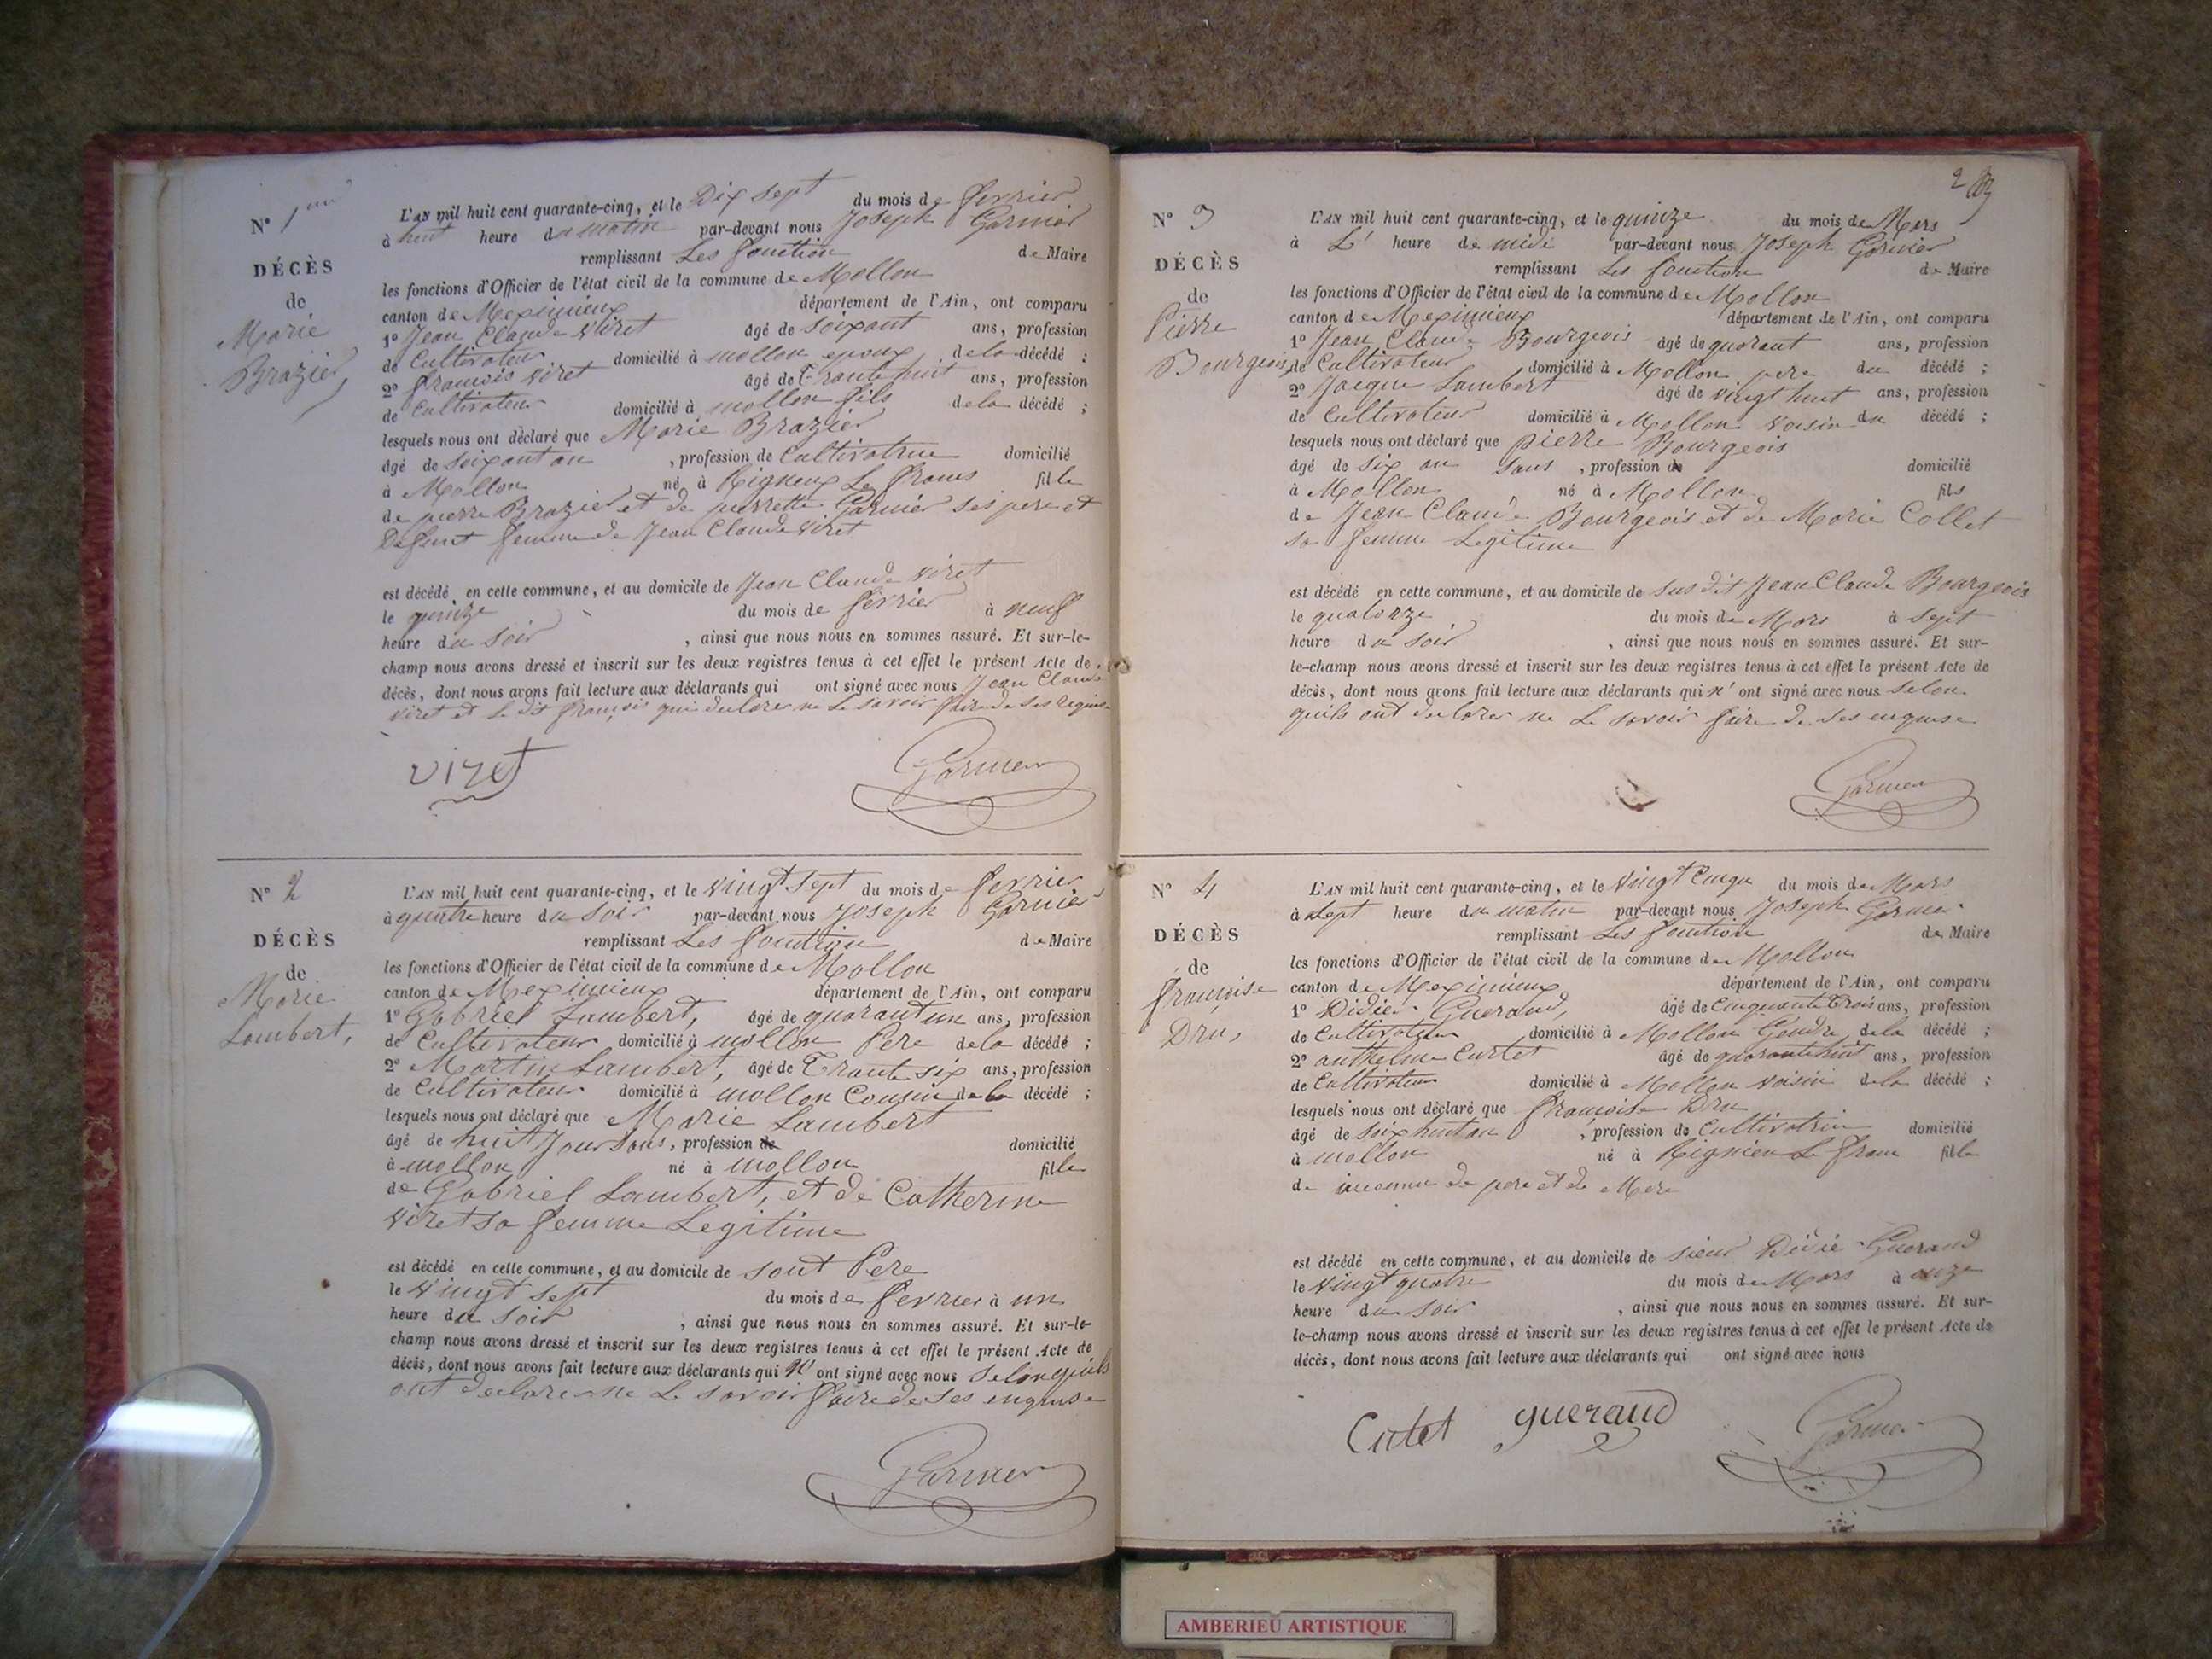 N° 1er
DÉCÈS
de
Marie
Brazier,
L'AN mil huit cent quarante-cinq, et le Dix sept du mois de fevrier
à huit heure du matin par-devant nous Joseph Garnier
remplissant Les fonction de Maire
les fonctions d'Officier de l'état civil de la commune de Mollon
canton de Meximieux département de l'Ain, ont comparu
1° Jean Claude Viret âgé de soixant ans, profession
de Cultivateur domicilié à mollon epoux de la décédé ;
2° françois Viret âgé de Trante huit ans, profession
de Cultivateur domicilié à mollon fils de la décédé ;
lesquels nous ont déclaré que Marie Brazier
âgé de soixant an , profession de Cultivatrice domicilié
à Mollon né à Rigneux Le franc fille
de pierre Brazier et de pierrette Garnier ses pere et
Defunt femme de Jean Claude Viret
est décédé en cette commune, et au domicile de Jean Claude Viret
le quinze du mois de fevrier à neuf
heure du soir , ainsi que nous nous en sommes assuré. Et sur-le-
champ nous avons dressé et inscrit sur les deux registres tenus à cet effet le présent Acte de
décès, dont nous avons fait lecture aux déclarants qui ont signé avec nous Jean Claude
Viret et le dit françois qui declarer ne Le savoir faire de ses requise
viret
Garnier
N° 2
DÉCÈS
de
Marie
Lambert,
L'AN mil huit cent quarante-cinq, et le vingt sept du mois de fevrier
à quatre heure du soir par-devant nous Joseph Garnier
remplissant Les fonction de Maire
les fonctions d'Officier de l'état civil de la commune de Mollon
canton de Meximieux département de l'Ain, ont comparu
1° Gabriel Lambert, âgé de quarant un ans, profession
de Cultivateur domicilié à mollon Pere de la décédé ;
2° Martin Lambert, âgé de Trante six ans, profession
de Cultivateur domicilié à mollon Cousin de la décédé ;
lesquels nous ont déclaré que Marie Lambert
âgé de huit Jour sans, profession de domicilié
à mollon né à mollon fille
de Gabriel Lambert, et de Catherine
Viret sa femme Legitime
est décédé en cette commune, et au domicile de sont Pere
le vingt sept du mois de fevrier à un
heure du soir , ainsi que nous nous en sommes assuré. Et sur-le-
champ nous avons dressé et inscrit sur les deux registres tenus à cet effet le présent Acte de
décès, dont nous avons fait lecture aux déclarants qui n' ont signé avec nous selon quils
ont declarer ne Le savoir faire de ses enquise
Garnier
2
N° 3
DÉCÈS
de
Pierre
Bourgeois,
L'AN mil huit cent quarante-cinq, et le quinze du mois de Mars
à L' heure de midi par-devant nous Joseph Garnier
remplissant Les fonction de Maire
les fonctions d'Officier de l'état civil de la commune de Mollon
canton de Meximieux département de l'Ain, ont comparu
1° Jean Claude Bourgeois âgé de quarant ans, profession
de Cultivateur domicilié à Mollon pere du décédé ;
2° Jacque Lambert âgé de vingt huit ans, profession
de Cultivateur domicilié à Mollon voisin du décédé ;
lesquels nous ont déclaré que pierre Bourgeois
âgé de six an sans , profession de domicilié
à Mollon né à Mollon fils
de Jean Claude Bourgeois et de Marie Collet
sa femme Legitime
est décédé en cette commune, et au domicile de sus dit Jean Claude Bourgeois
le quatorze du mois de Mars à sept
heure du soir , ainsi que nous nous en sommes assuré. Et sur-
le-champ nous avons dressé et inscrit sur les deux registres tenus à cet effet le présent Acte de
décès, dont nous avons fait lecture aux déclarants qui n' ont signé avec nous selon
quils ont declarer ne Le savoir faire de ses enquise
Garnier
N° 4
DÉCÈS
de
françoise
Dru,
L'AN mil huit cent quarante-cinq, et le vingt Cinqu du mois de Mars
à sept heure du matin par-devant nous Joseph Garnier
remplissant Les fonction de Maire
les fonctions d'Officier de l'état civil de la commune de Mollon
canton de Meximieux département de l'Ain, ont comparu
1° Didier Gueraud, âgé de Cinquante Trois ans, profession
de Cultivateur domicilié à Mollon Gendre de la décédé ;
2° anthelme Curtet âgé de quarante huit ans, profession
de Cultivateur domicilié à Mollon voisin de la décédé ;
lesquels nous ont déclaré que françoise Dru
âgé de soix huit an , profession de Cultivatrice domicilié
à mollon né à Rignieu Le franc fille
de inconnu de pere et de Mere
est décédé en cette commune, et au domicile de sieur Didié Gueraud
le vingt quatre du mois de Mars à onze
heure du soir , ainsi que nous nous en sommes assuré. Et sur-
le-champ nous avons dressé et inscrit sur les deux registres tenus à cet effet le présent Acte de
décès, dont nous avons fait lecture aux déclarants qui ont signé avec nous
Cutet gueraud
Garnier
AMBERIEU ARTISTIQUE